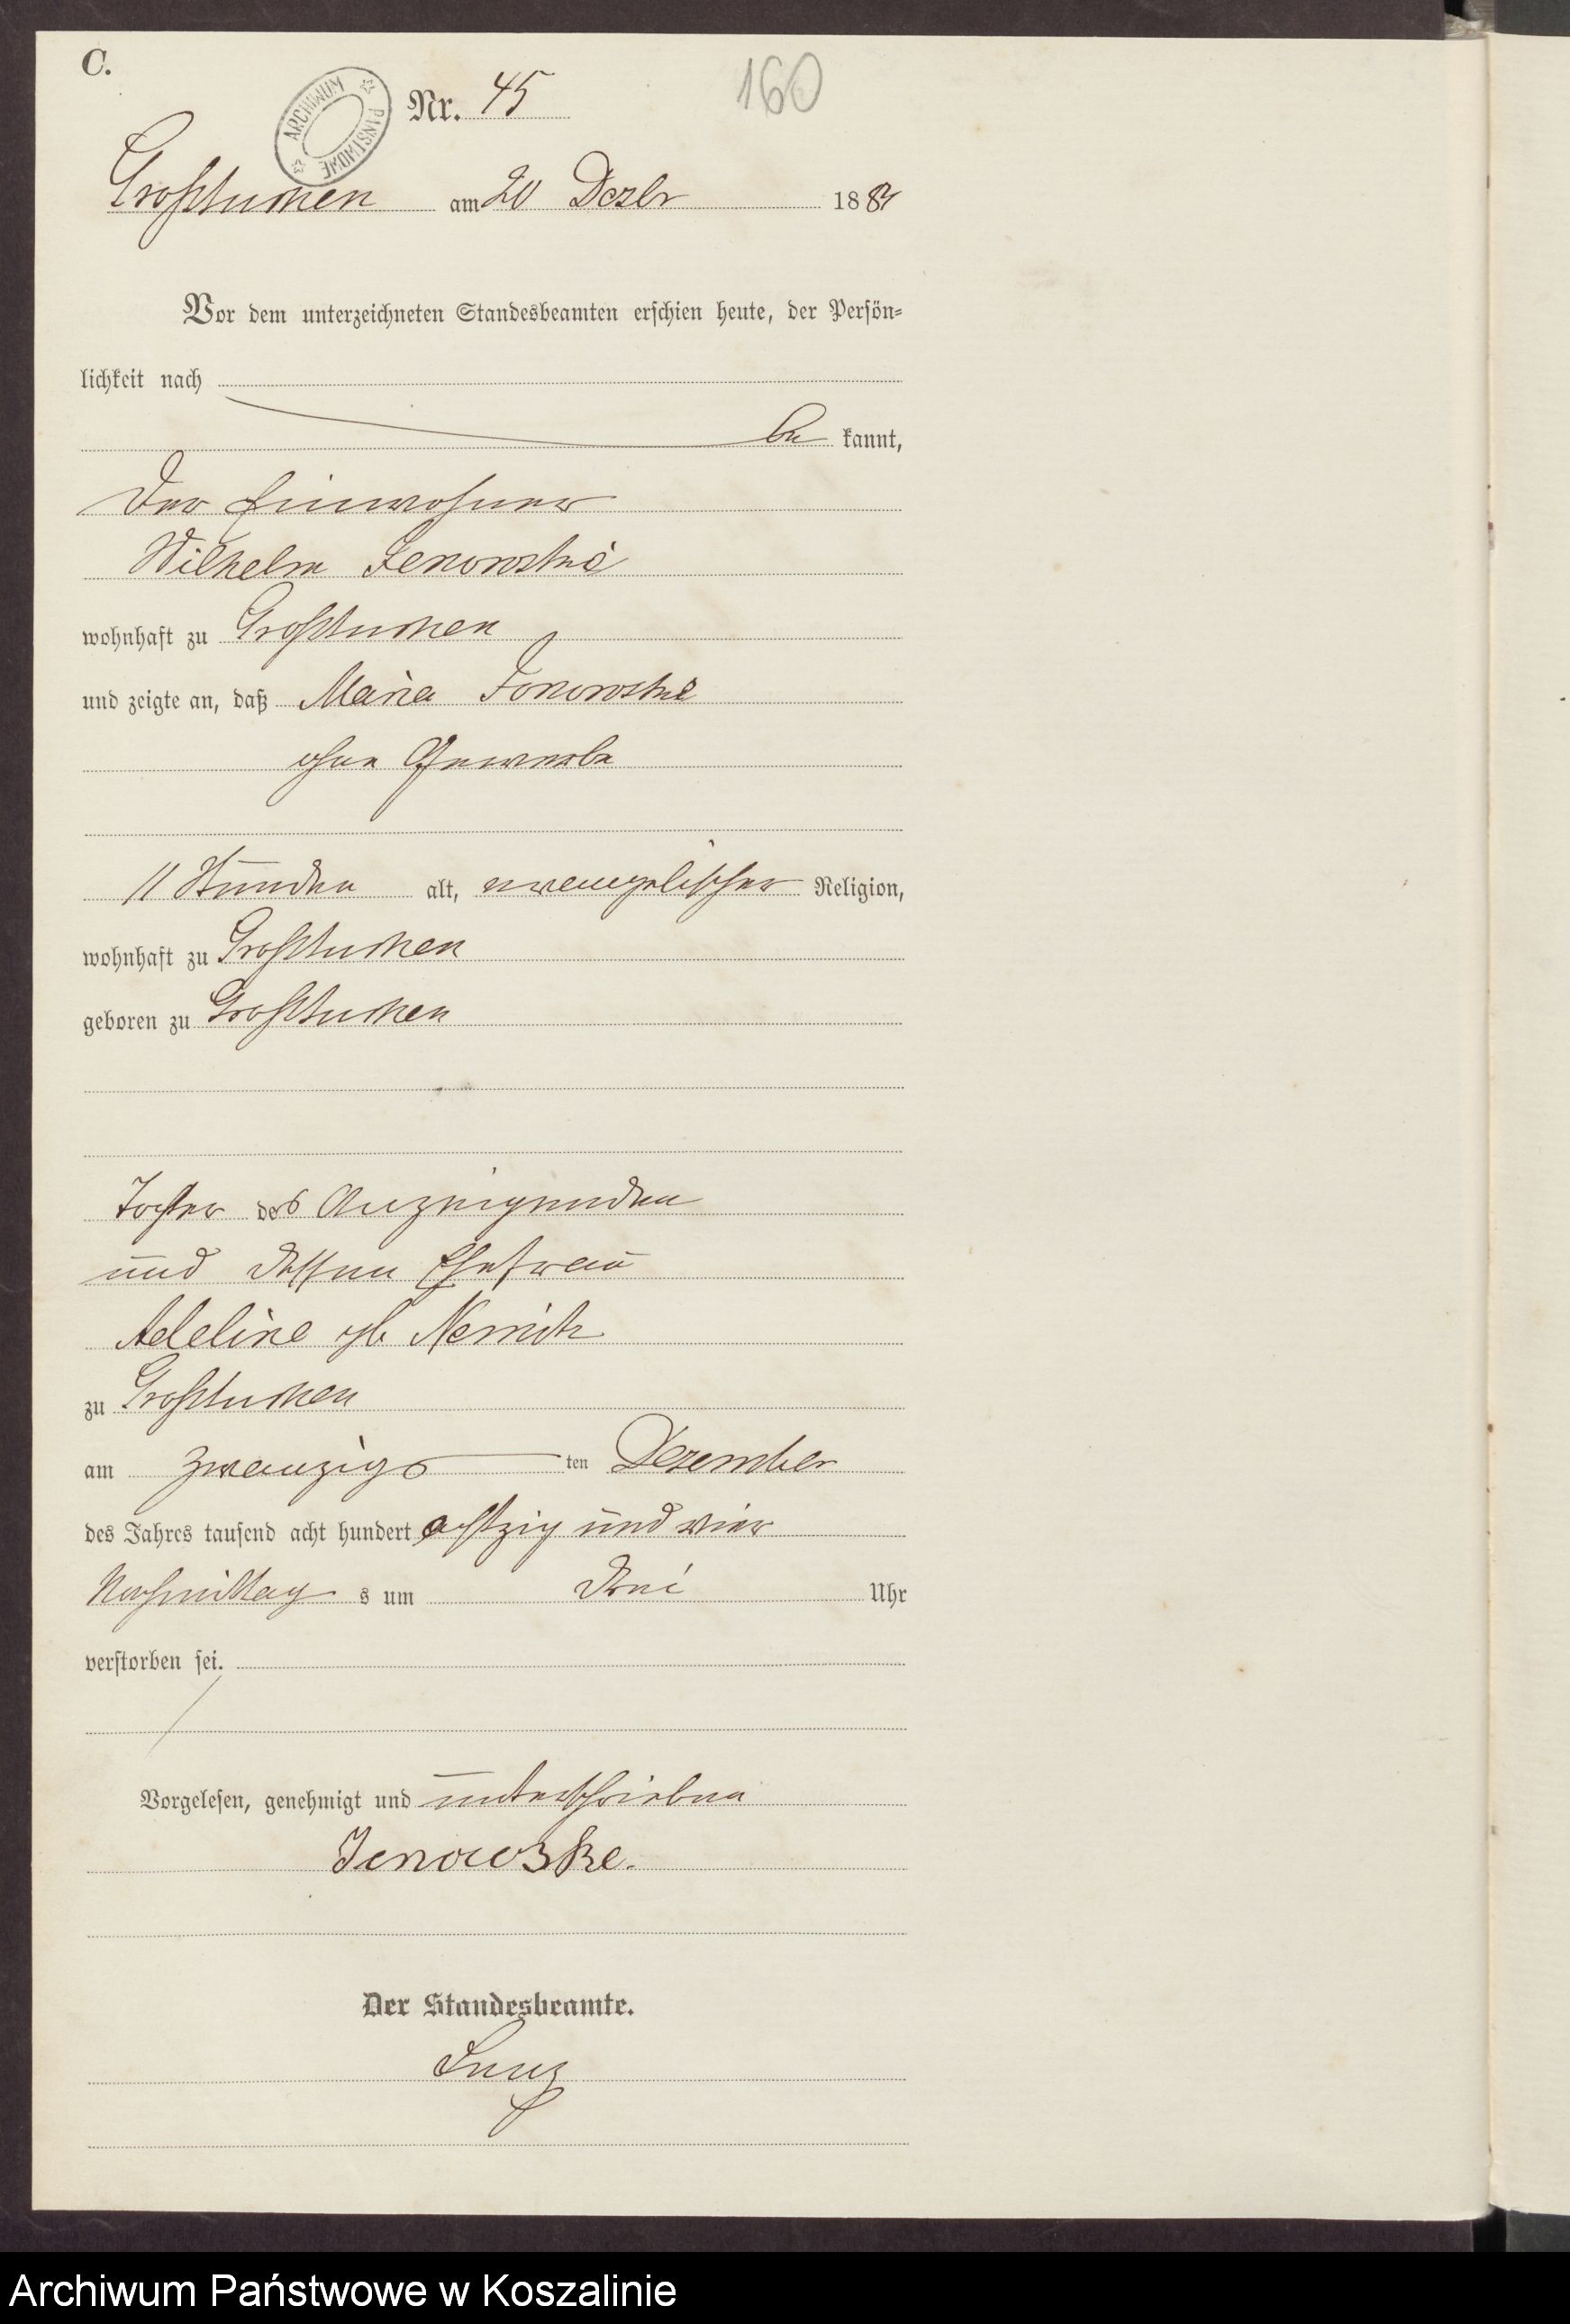 C.
ARCHIWUM PAŃSTWOWE
Nr. 45
160
Großtuchen am 20 Dezbr 1884
Vor dem unterzeichneten Standesbeamten erschien heute, der Persön-
lichkeit nach
be kannt,
Der Einwohner
Wilhelm Jenowske
wohnhaft zu Großtuchen
und zeigte an, daß Maria Jenowske
ohne Gewerbe
11 Stunden alt, evangelischer Religion,
wohnhaft zu Großtuchen
geboren zu Großtuchen
Tochter des Anzeigenden
und dessen Ehefrau
Adeline geb
zu Großtuchen
am zwanzigs ten Dezember
des Jahres tausend acht hundert achtzig und vier
Nachmittag s um drei Uhr
verstorben sei.
Vorgelesen, genehmigt und unterschrieben
Jenowske.
Der Standesbeamte.
Archiwum Państwowe w Koszalinie